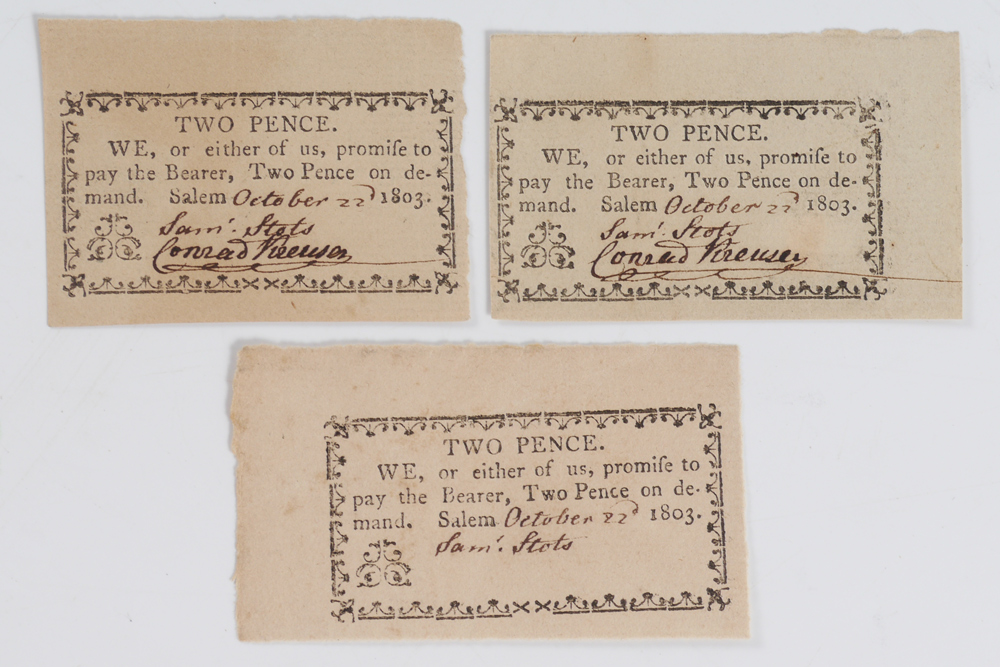 TWO PENCE.
WE, or either of us, promiſe to
pay the Bearer, Two Pence on de-
mand. Salem October 22d 1803.
Sam.l Stots
Conrad Kreuser
TWO PENCE.
WE, or either of us, promiſe to
pay the Bearer, Two Pence on de-
mand. Salem October 22d 1803.
Sam.l Stots
Conrad Kreuser
TWO PENCE.
WE, or either of us, promiſe to
pay the Bearer, Two Pence on de-
mand. Salem October 22d 1803.
Sam.l Stots